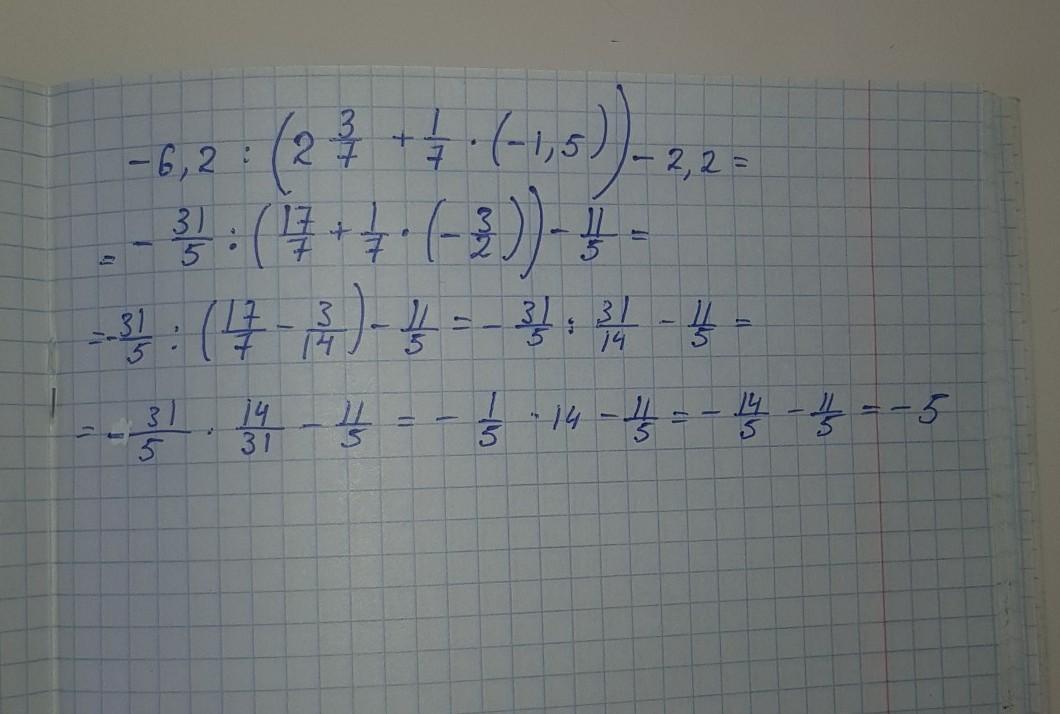 -6,2 : (2 3/7 + 1/7 · (-1,5)) - 2,2 =
= - 31/5 : (17/7 + 1/7 · (- 3/2)) - 11/5 =
= - 31/5 : (17/7 - 3/14) - 11/5 = - 31/5 : 31/14 - 11/5 =
= - 31/5 · 14/31 - 11/5 = - 1/5 · 14 - 11/5 = - 14/5 - 11/5 = - 5